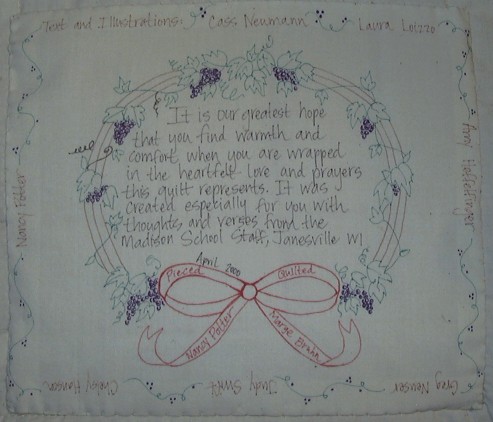 Text and Illustrations: Cass Neumann Laura Loizzo
It is our greatest hope
that you find warmth and
comfort when you are wrapped
in the heartfelt love and prayers
this quilt represents. It was
created especially for you with
thoughts and verses from the
Madison School Staff, Janesville WI
April 2000
Pieced Quilted
Nancy Potter Marge Braun
Nancy Potter
Amy Heffelfinger
Cathy Hanson Judy Smith Greg Neuser